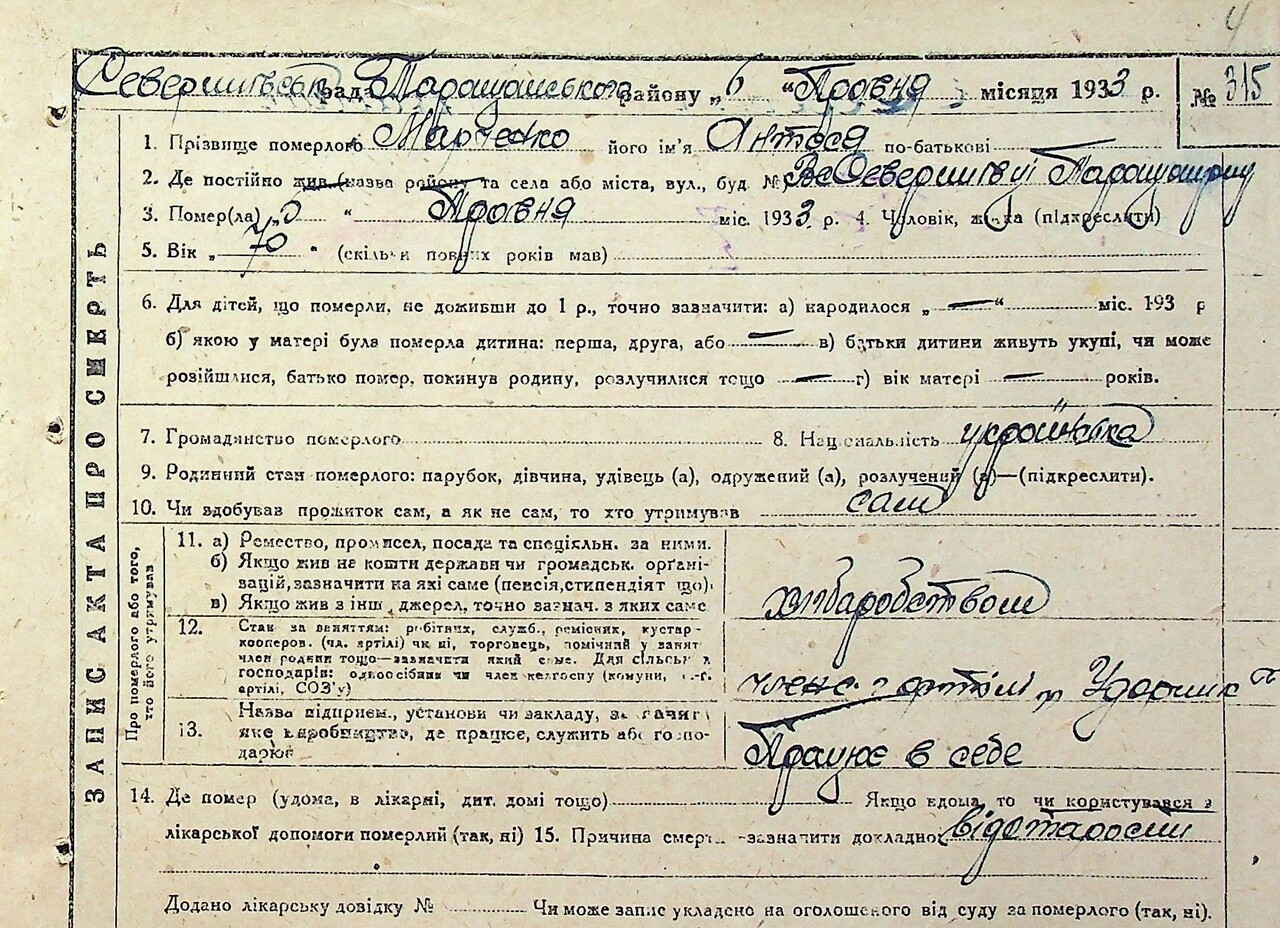 4
рад Таращанського району „6 “ Травня місяця 1933 р. № 315
ЗАПИС АКТА ПРО СМЕРТЬ
1. Прізвище померлого Марченко його ім'я Антося по-батькові
2. Де постійно жив (назва району та села або міста, вул., буд. №
3. Помер(ла) „ “ Травня міс. 1933 р. 4. Чоловік, жінка (підкреслити)
5. Вік „ 70 “ (скільки повних років мав)
6. Для дітей, що померли, не доживши до 1 р., точно зазначити: а) народилося „ — “ міс. 193 р
б) якою у матері була померла дитина: перша, друга, або — в) батьки дитини живуть укупі, чи може
розійшлися, батько помер, покинув родину, розлучилися тощо — г) вік матері — років.
7. Громадянство померлого 8. Національність українська
9. Родинний стан померлого: парубок, дівчина, удівець (а), одружений (а), розлучений (а)—(підкреслити).
10. Чи здобував прожиток сам, а як не сам, то хто утримував сам
Про померлого або того,
хто його утримував
11. а) Ремество, промисел, посада та спеціяльн. за ними.
б) Якщо жив на кошти держави чи громадськ. орґані-
зацій, зазначити на які саме (пенсія, стипендіят що).
в) Якщо жив з інш. джерел, точно зазнач. з яких саме
хлібаробством
12. Стан за заняттям: робітник, служб., ремісник, кустар-
кооперов. (чл. артілі) чи ні, торговець, помічний у занят
член родини тощо—зазначити який саме. Для сільськ
господарів: одноосібник чи член колгоспу (комуни, с.-г.
артілі, СОЗ'у)
член артілі Ударник
13. Назва підприєм., установи чи закладу, 
яке виробництво, де працює, служить або госпо-
дарює
Працює в себе
14. Де помер (удома, в лікарні, дит. домі тощо) Якщо вдома, то чи користувався з
лікарської допомоги померлий (так, ні) 15. Причина смерти—зазначити докладно відстарости
Додано лікарську довідку № Чи може запис укладено на оголошеного від суду за померлого (так, ні).